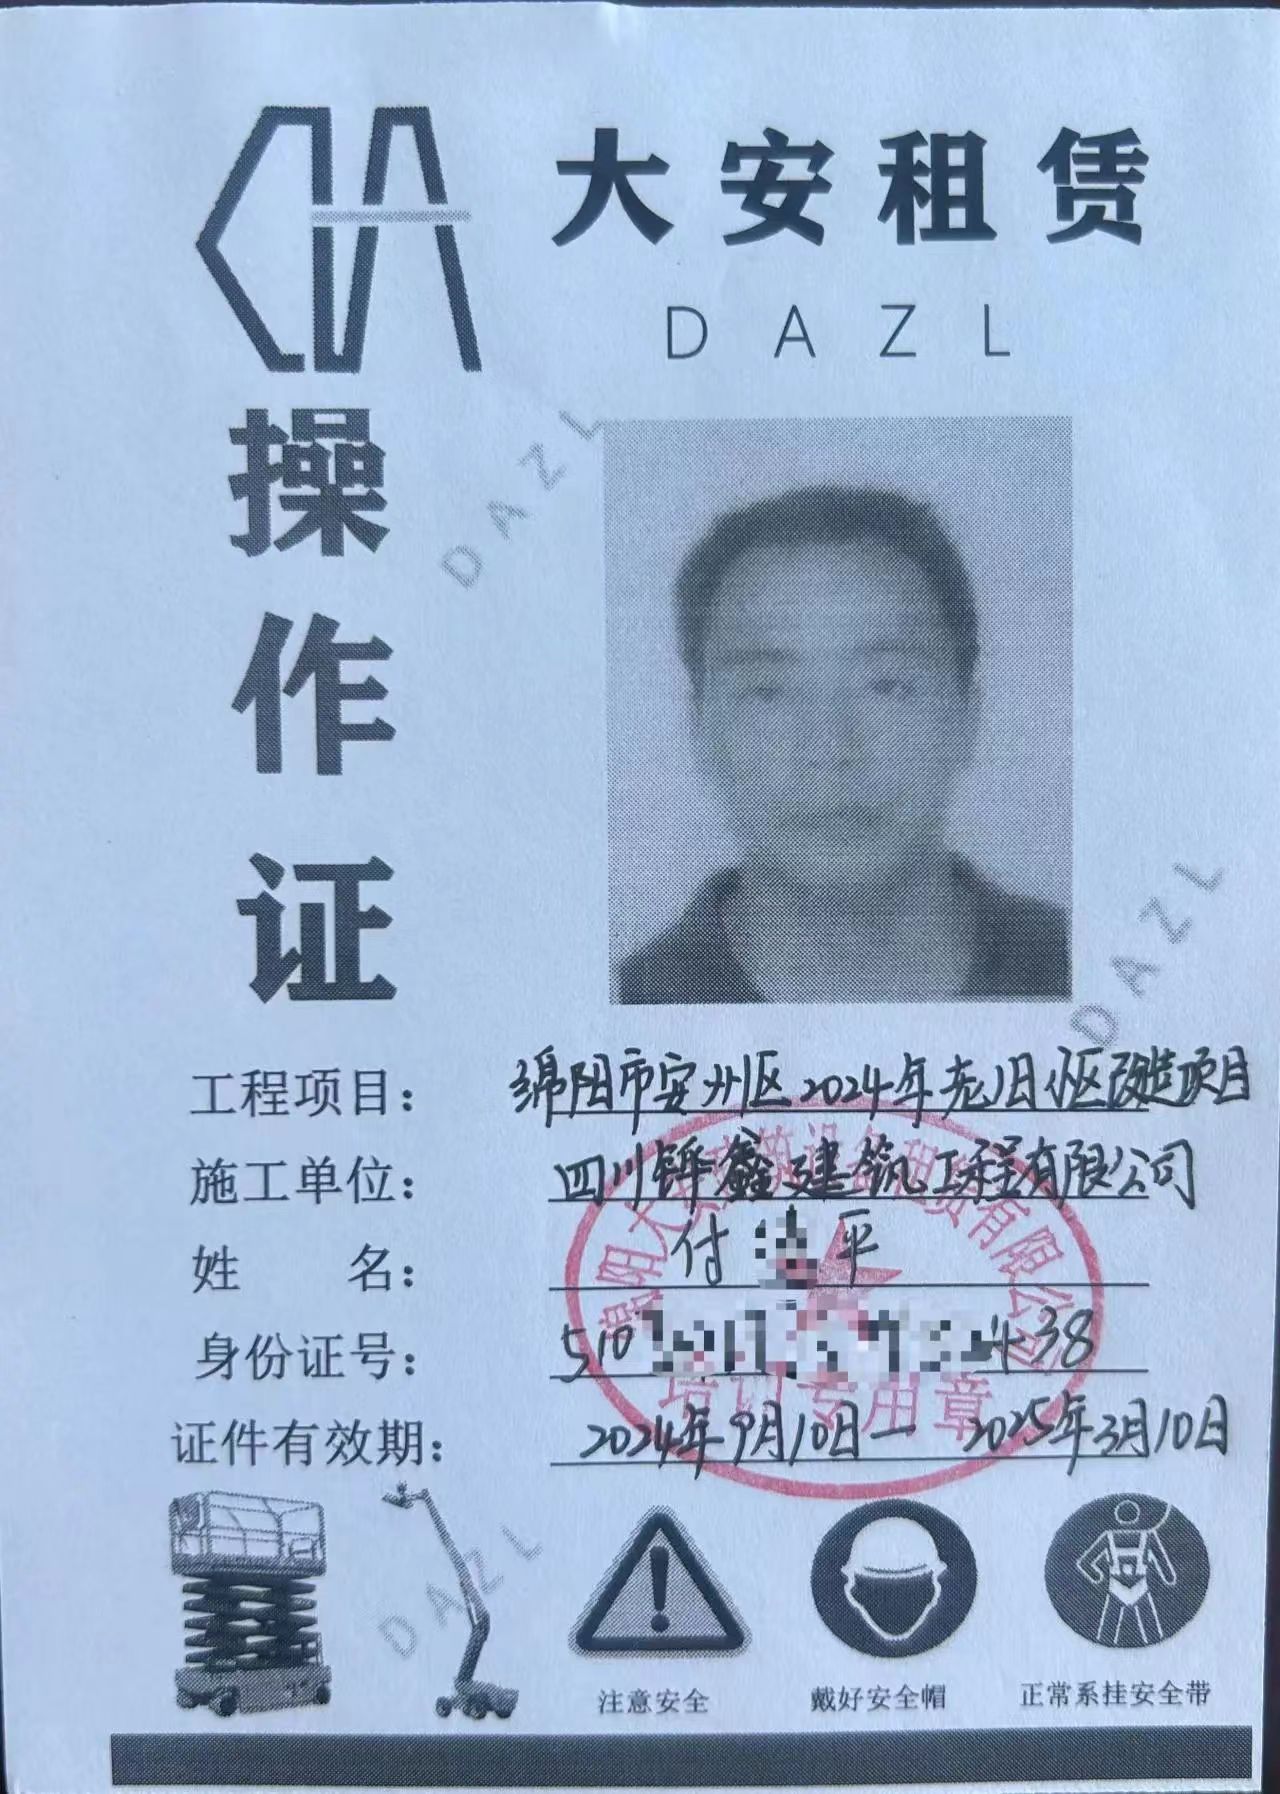 大安租赁
DAZL
操作证
DAZL
DAZL
工程项目: 绵阳市安州区2024年老旧小区改造项目
施工单位: 四川铧鑫建筑工程有限公司
姓 名: 付 平
身份证号: 510 38
证件有效期: 2024年9月10日— 2025年3月10日
绵阳大安建筑设备租赁有限公司
培训专用章
DAZL
注意安全
戴好安全帽
正常系挂安全带